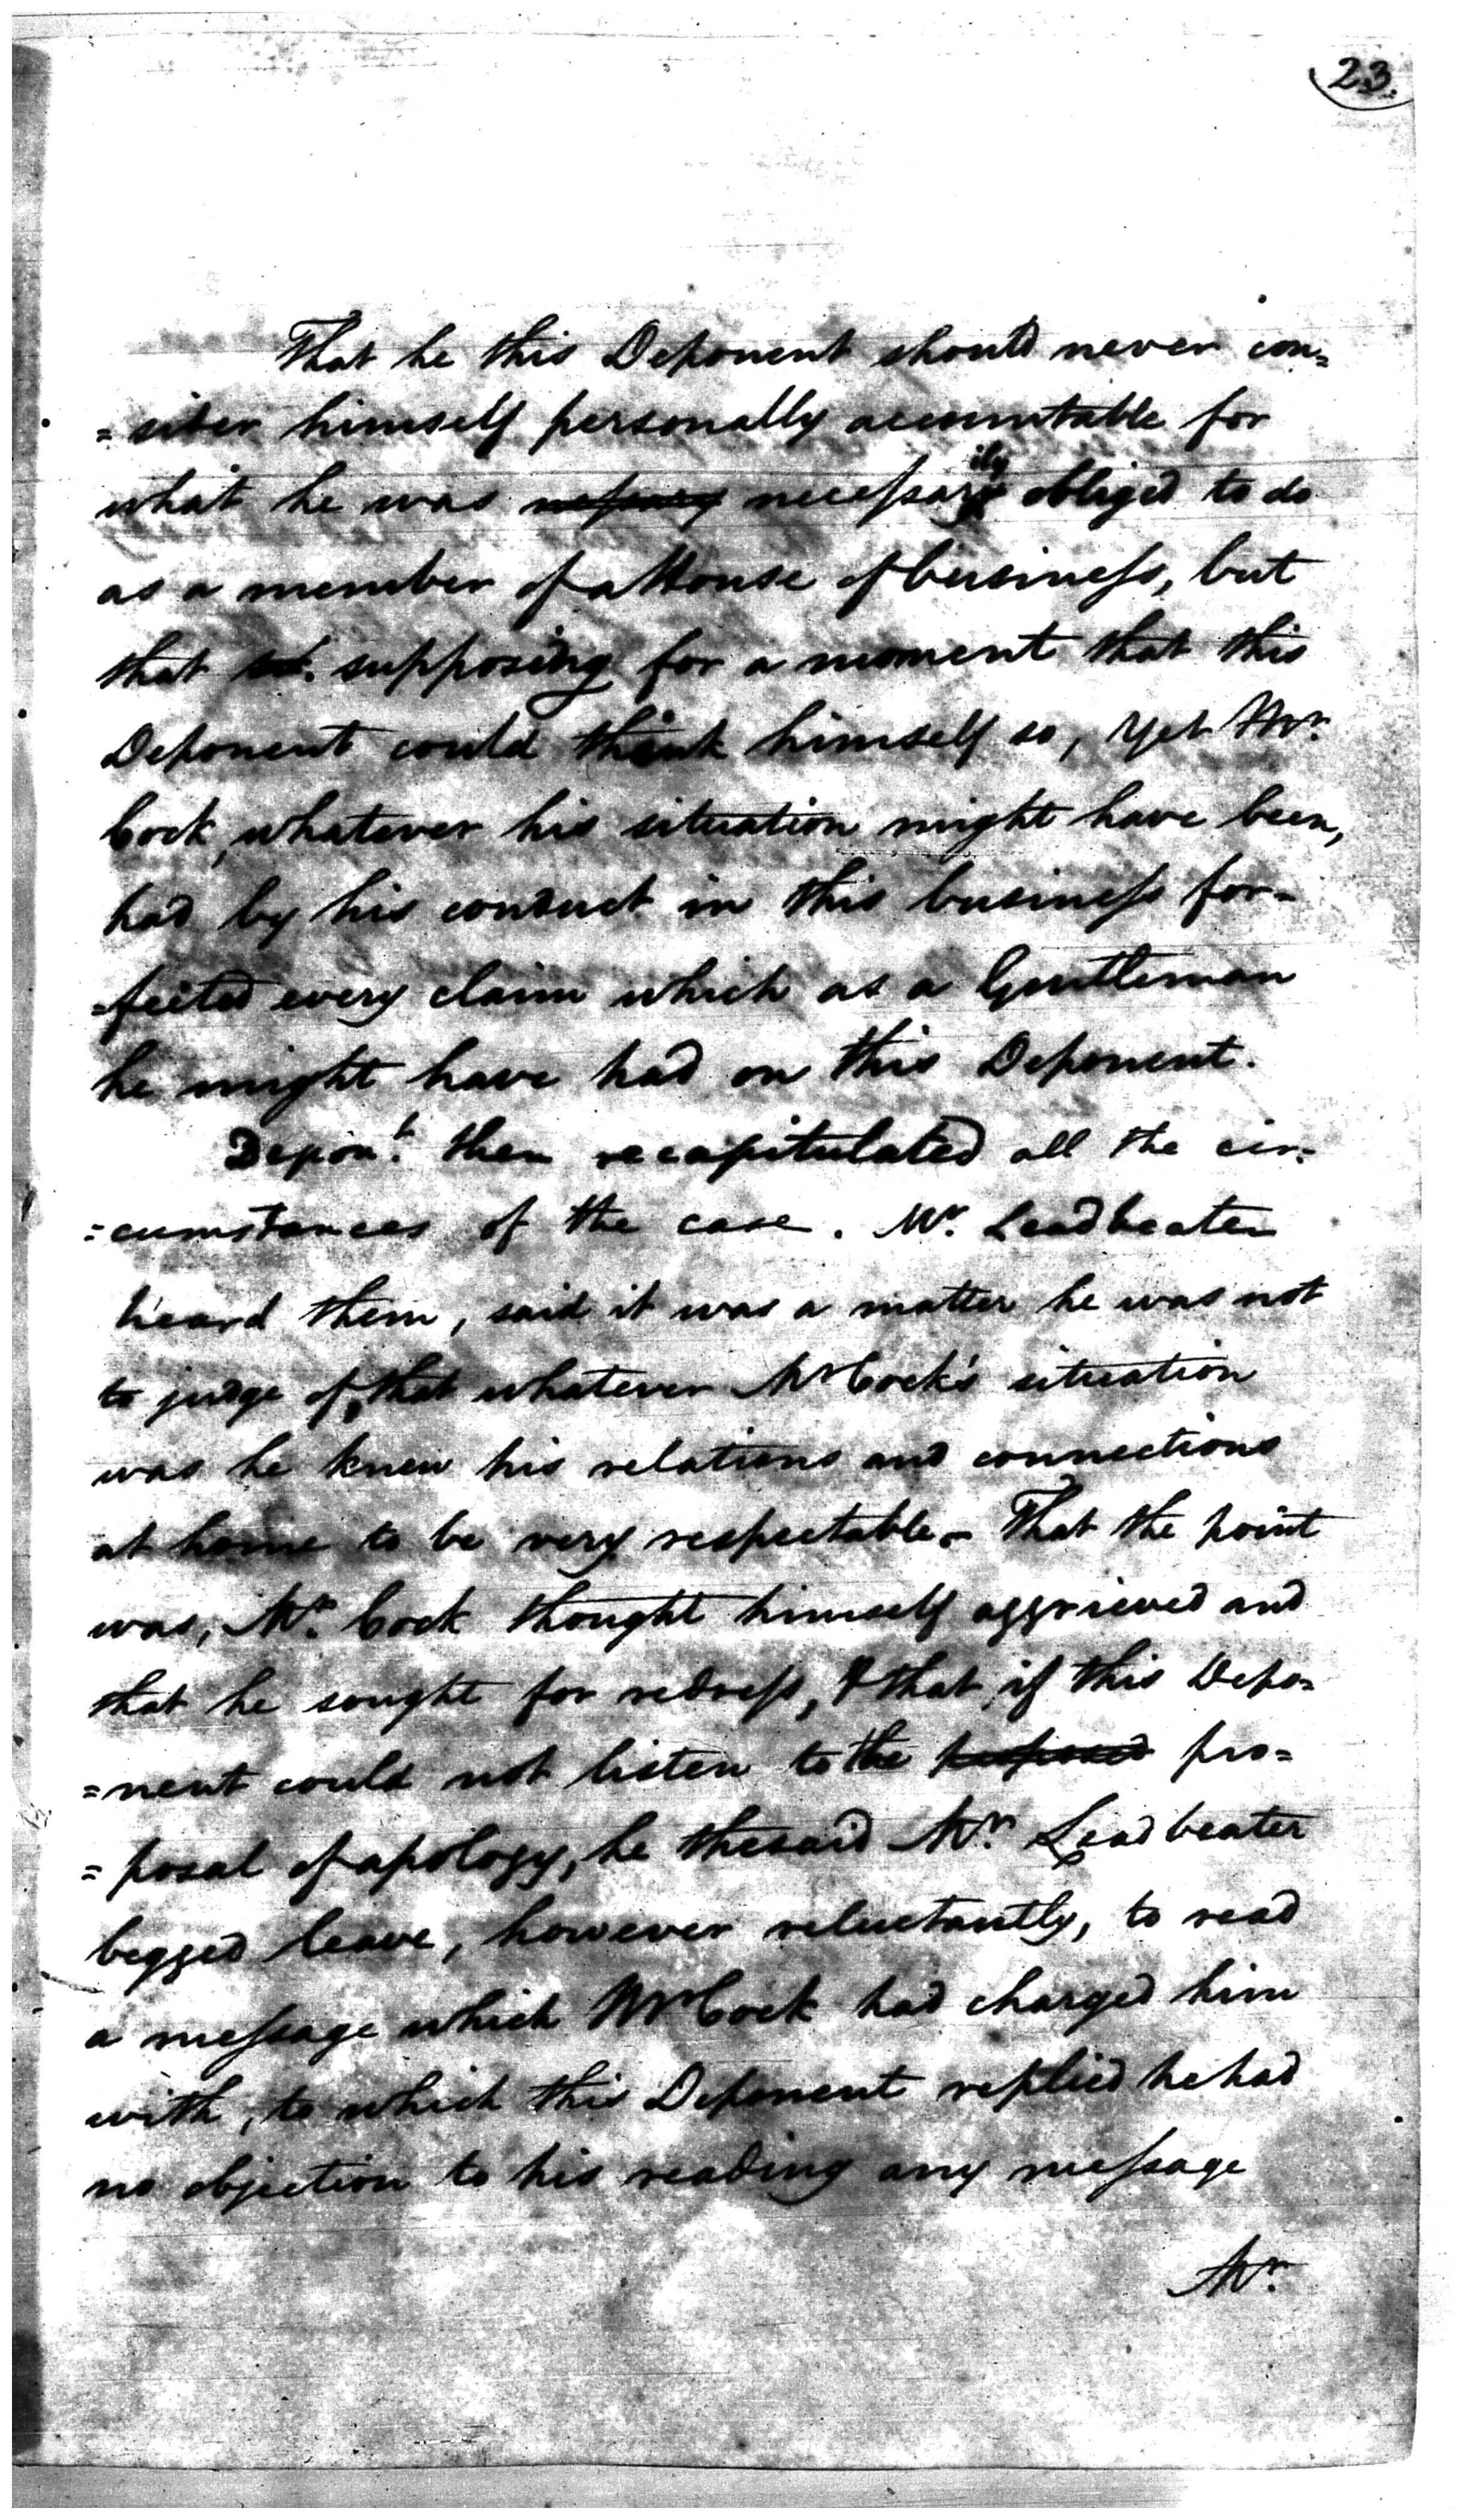 23.
That he this Deponent should never con=
=sider himself personally accountable for
what he was necessarily obliged to do
as a member of a House of business, but
that supposing for a moment that this
Deponent could think himself so, yet Mr.
Cock, whatever his situation might have been,
had by his conduct in this business for-
-feited every claim which as a Gentleman
he might have had on this Deponent.
Depont. then recapitulated all the cir=
=cumstances of the case. Mr. Leadbeater
heard them, said it was a matter he was not
to judge of, that whatever Mr Cock's situation
was he knew his relations and connections
at home to be very respectable - That the point
was, Mr. Cock thought himself aggrieved and
that he sought for redress, & that if this Depo=
=nent could not listen to the pro=
=posal of apology, he the said Mr. Leadbeater
begged leave, however reluctantly, to read
a message which Mr Cock had charged him
with, to which this Deponent replied he had
no objection to his reading any message
Mr.